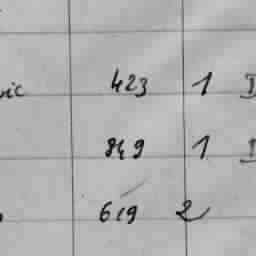 vic 423 1 I
849 1 I
619 2